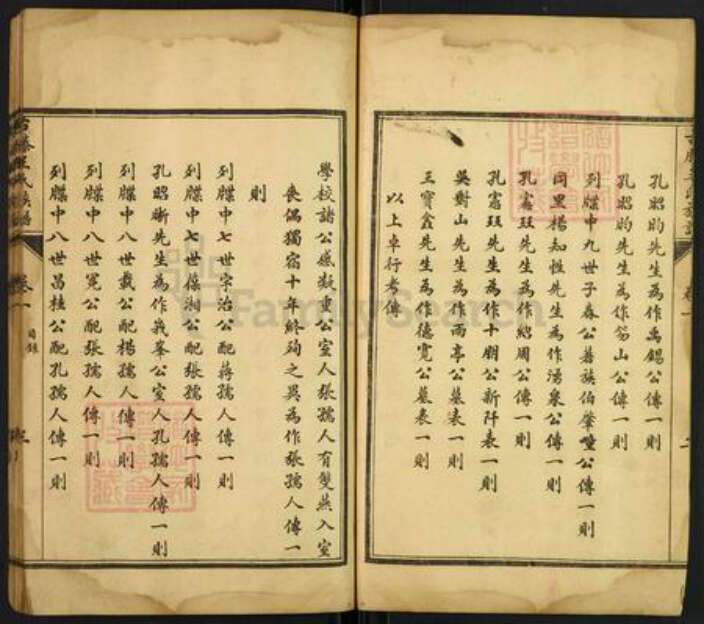 孔昭昀先生為作禹錫公傳一則
孔昭昀先生為作笏山公傳一則
列牒中九世子春公暮族伯肇唑公傳一則
同里楊知性先生為作湯泉公傳一則
孔憲珏先生為作紹周公傳一則
孔憲珏先生為作十朋公新阡表一則
吳對山先生為作雨亭公墓表一則
王寶鑫先生為作德寬公墓表一則
以上卓行考傳
學校諸公感凝重公室人張孺人有雙燕入室
喪偶獨宿十年終殉之異為作張孺人傳一
則
列牒中七世宇治公配蔣孺人傳一則
列牒中七世葆湘公配張孺人傳一則
孔昭晰先生為作義峯公室人孔孺人傳一則
列牒中八世載公配楊孺人傳一則
列牒中八世冕公配張孺人傳一則
列牒中八世昌桂公配孔孺人傳一則
卷一
目錄
FamilySearch